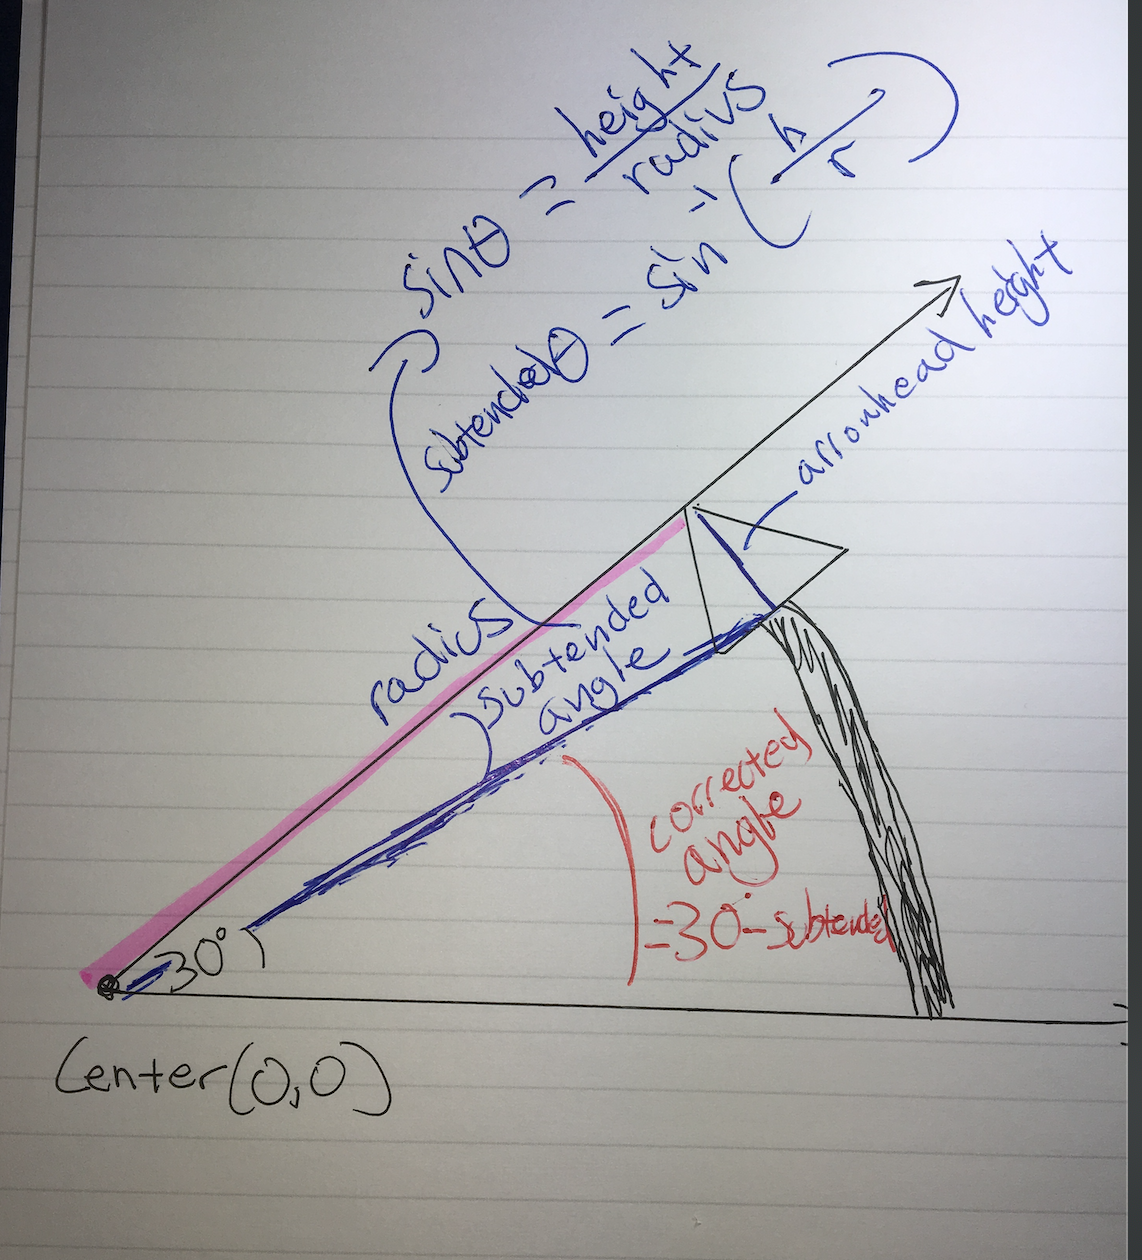 sinθ = height/radius
subtended θ = sin⁻¹(h/r)
arrowhead height
radius
subtended
angle
corrected
angle
=30°-subtended
30°
Center(0,0)